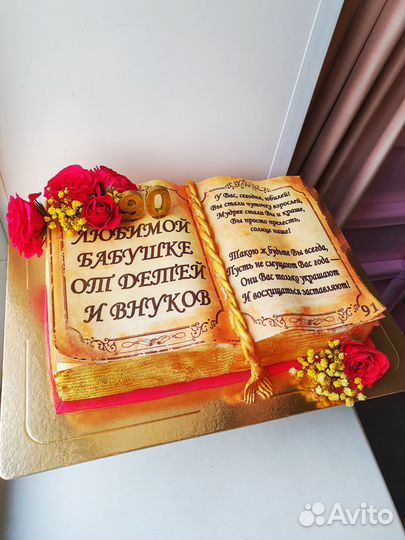 90
ЛЮБИМОЙ
БАБУШКЕ
ОТ ДЕТЕЙ
И ВНУКОВ
У Вас, сегодня, юбилей!
Вы стали чуточку взрослей,
Мудрее стали Вы и краше,
Вы просто прелесть,
солнце наше!
Такою ж будьте Вы всегда,
Пусть не смущают Вас года -
Они Вас только украшают
И восхищаться заставляют!
91
Avito